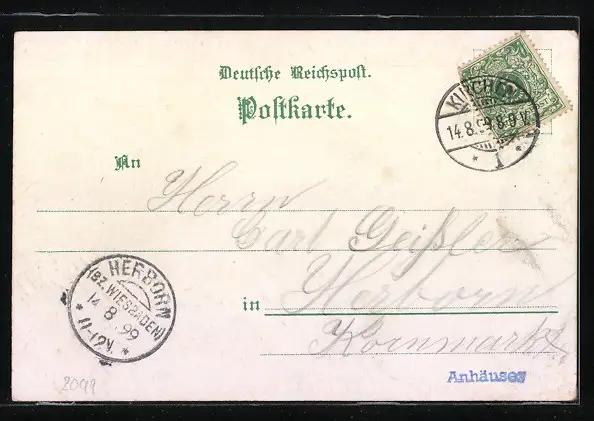 Deutsche Reichspost.
Postkarte.
KIRCHEN
14.8.99.8-9V.
* 1 *
An
Herrn
Carl Geißler
in Herborn
Kornmarkt
HERBORN
(BZ. WIESBADEN)
14 8 99
* 11-12V. *
Anhäuser
2099